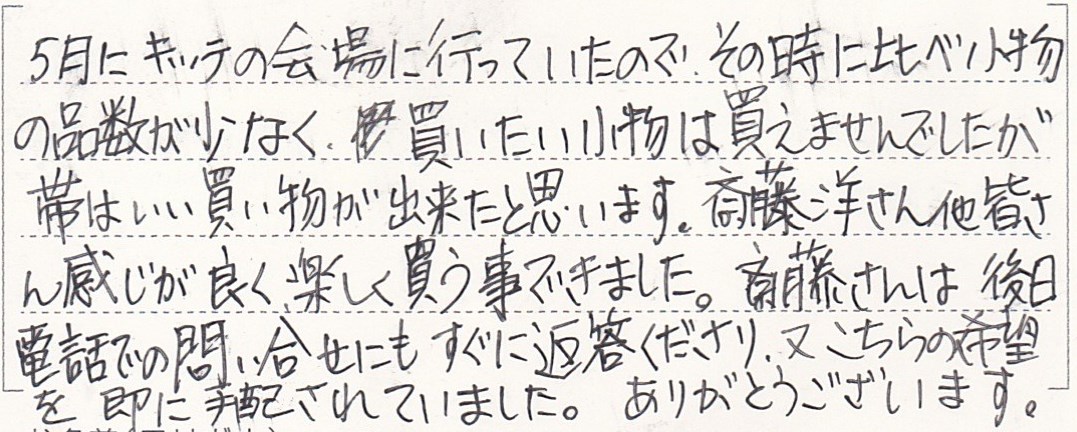 5月にキッテの会場に行っていたので、その時に比べ小物
の品数が少なく、買いたい小物は買えませんでしたが
帯はいい買い物が出来たと思います。斎藤洋さん他皆さ
ん感じが良く、楽しく買う事できました。斎藤さんは後日
電話での問い合せにもすぐに返答くださり、又こちらの希望
を即に手配されていました。ありがとうございます。